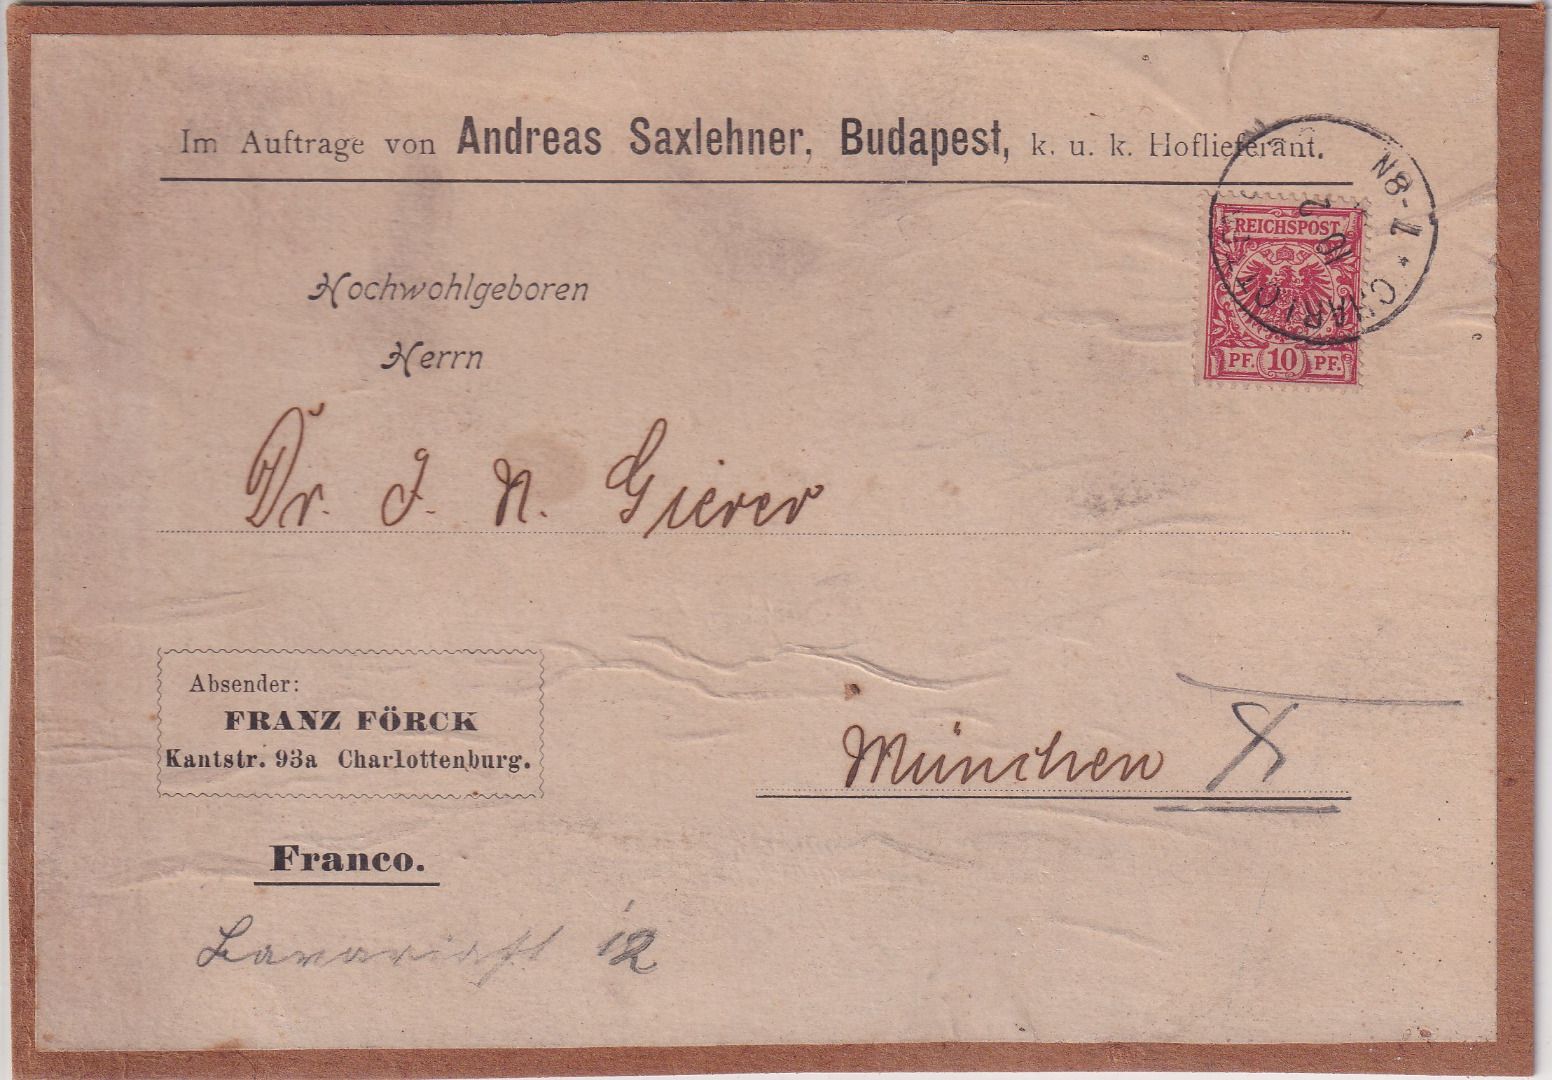 Im Auftrage von Andreas Saxlehner, Budapest, k. u. k. Hoflieferant.
REICHSPOST
PF. 10 PF.
Hochwohlgeboren
Herrn
Dr. J. N. Gierer
Absender:
FRANZ FÖRCK
Kantstr. 93a Charlottenburg.
München
Franco.
Bavariast 12